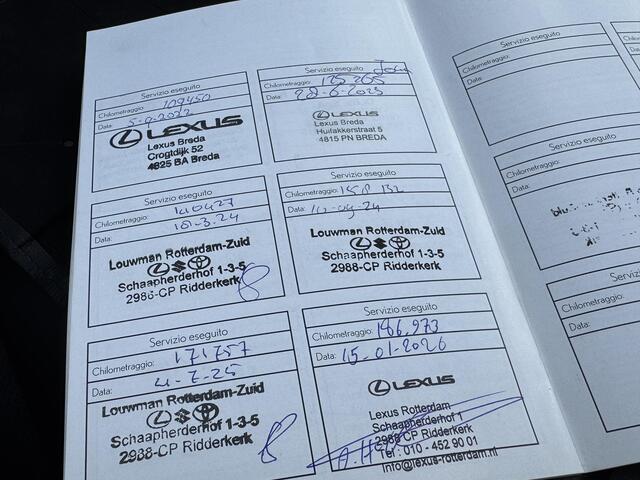 Servizio eseguito
Chilometraggio: 109450
Data: 5-9-2022
LEXUS
Lexus Breda
Crogtdijk 52
4825 BA Breda
Servizio eseguito
Chilometraggio: 125 265
Data: 28-6-2023
LEXUS
Lexus Breda
Huifakkerstraat 5
4815 PN BREDA
Servizio eseguito
Chilometraggio: 140427
Data:
Louwman Rotterdam-Zuid
Schaapherderhof 1-3-5
2988-CP Ridderkerk
Servizio eseguito
Chilometraggio: 158 132
Data:
Louwman Rotterdam-Zuid
Schaapherderhof 1-3-5
2988-CP Ridderkerk
Servizio eseguito
Chilometraggio: 171757
Data: 4-7-25
Louwman Rotterdam-Zuid
Schaapherderhof 1-3-5
2988-CP Ridderkerk
Servizio eseguito
Chilometraggio: 186.973
Data: 15-01-2026
LEXUS
Lexus Rotterdam
Schaapherderhof 1
2988 CP Ridderkerk
Tel : 010 - 452 90 01
info@lexus-rotterdam.nl
Chilometraggio:
Data:
Chilometraggio:
Data:
Chilometraggio:
Data: